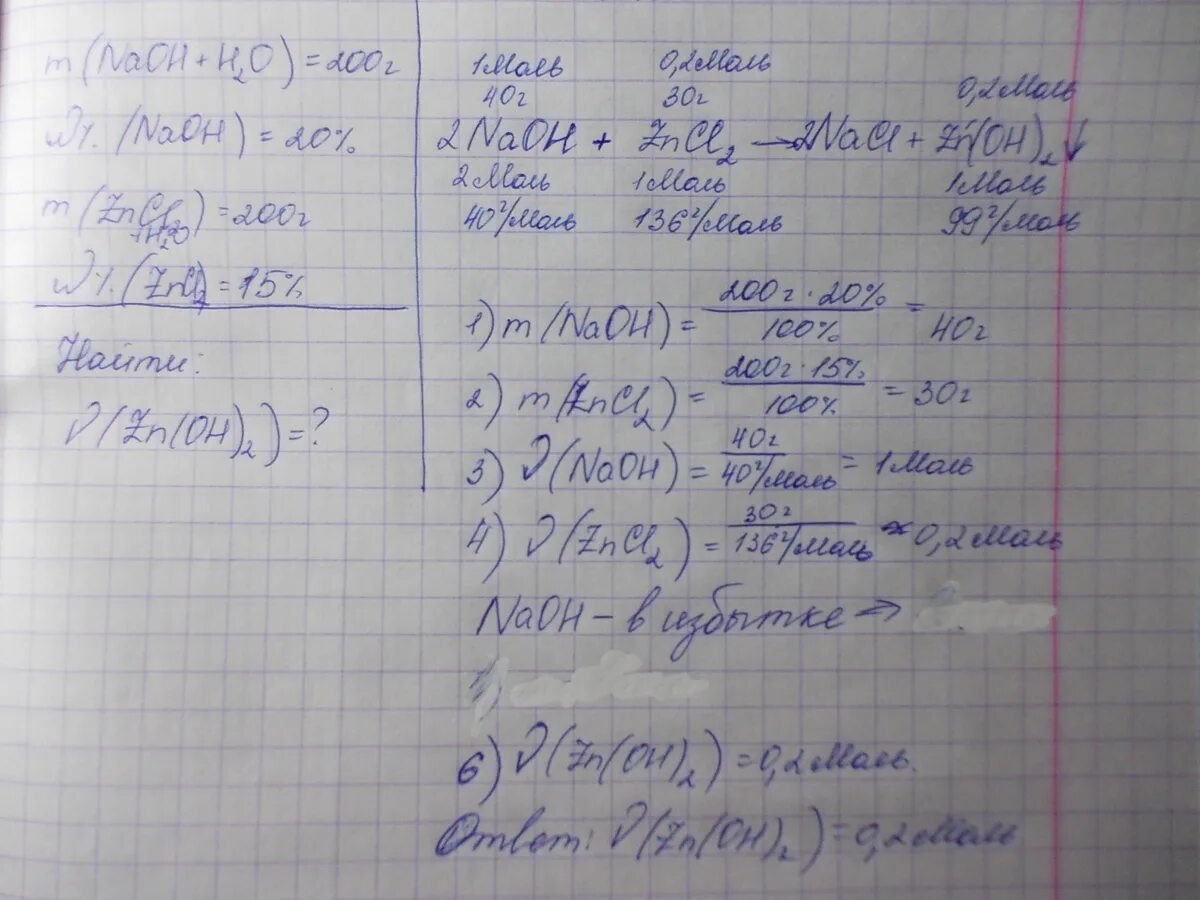 m(NaOH + H₂O) = 200г
W%(NaOH) = 20%
m(ZnCl₂ + H₂O) = 200г
W%(ZnCl₂) = 15%
Найти:
ν(Zn(OH)₂) = ?
1моль 0,2моль
40г 30г 0,2моль
2NaOH + ZnCl₂ → 2NaCl + Zn(OH)₂↓
2моль 1моль 1моль
40г/моль 136г/моль 99г/моль
1) m(NaOH) = 200г · 20% / 100% = 40г
2) m(ZnCl₂) = 200г · 15% / 100% = 30г
3) ν(NaOH) = 40г / 40г/моль = 1моль
4) ν(ZnCl₂) = 30г / 136г/моль ≈ 0,2моль
NaOH – в избытке →
6) ν(Zn(OH)₂) = 0,2моль.
Ответ: ν(Zn(OH)₂) = 0,2моль